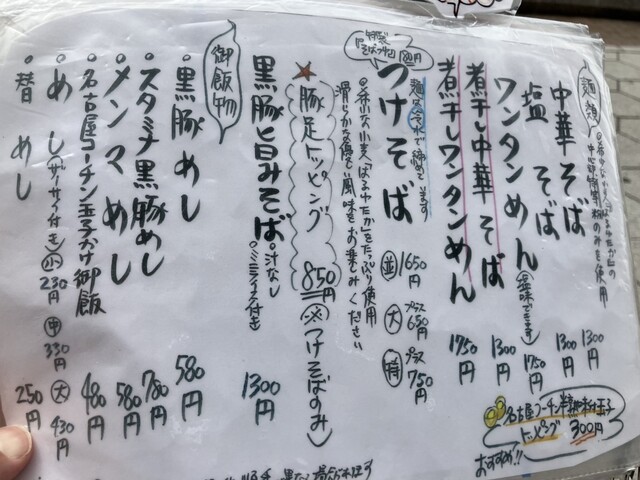 麺類
中華そば 1300円
塩そば 1300円
ワンタンめん(塩味できます) 1750円
煮干し中華そば 1300円
煮干しワンタンめん 1750円
名古屋コーチン半熟味付玉子
トッピング 300円
おすすめ!!
麺は冷水で締めてます
つけそば 並 1650円 大 プラス650円 特 プラス750円
「はるゆたか」をたっぷり使用
滑らかな優しい風味をお楽しみください
★豚足トッピング 850円(※つけそばのみ)
黒豚旨みそば 汁なし ミニライス付き 1300円
御飯物
黒豚めし 580円
スタミナ黒豚めし 780円
メンマめし 580円
名古屋コーチン玉子かけ御飯 480円
めし(ザーサイ付き) 小 230円 中 330円 大 430円
替めし 250円